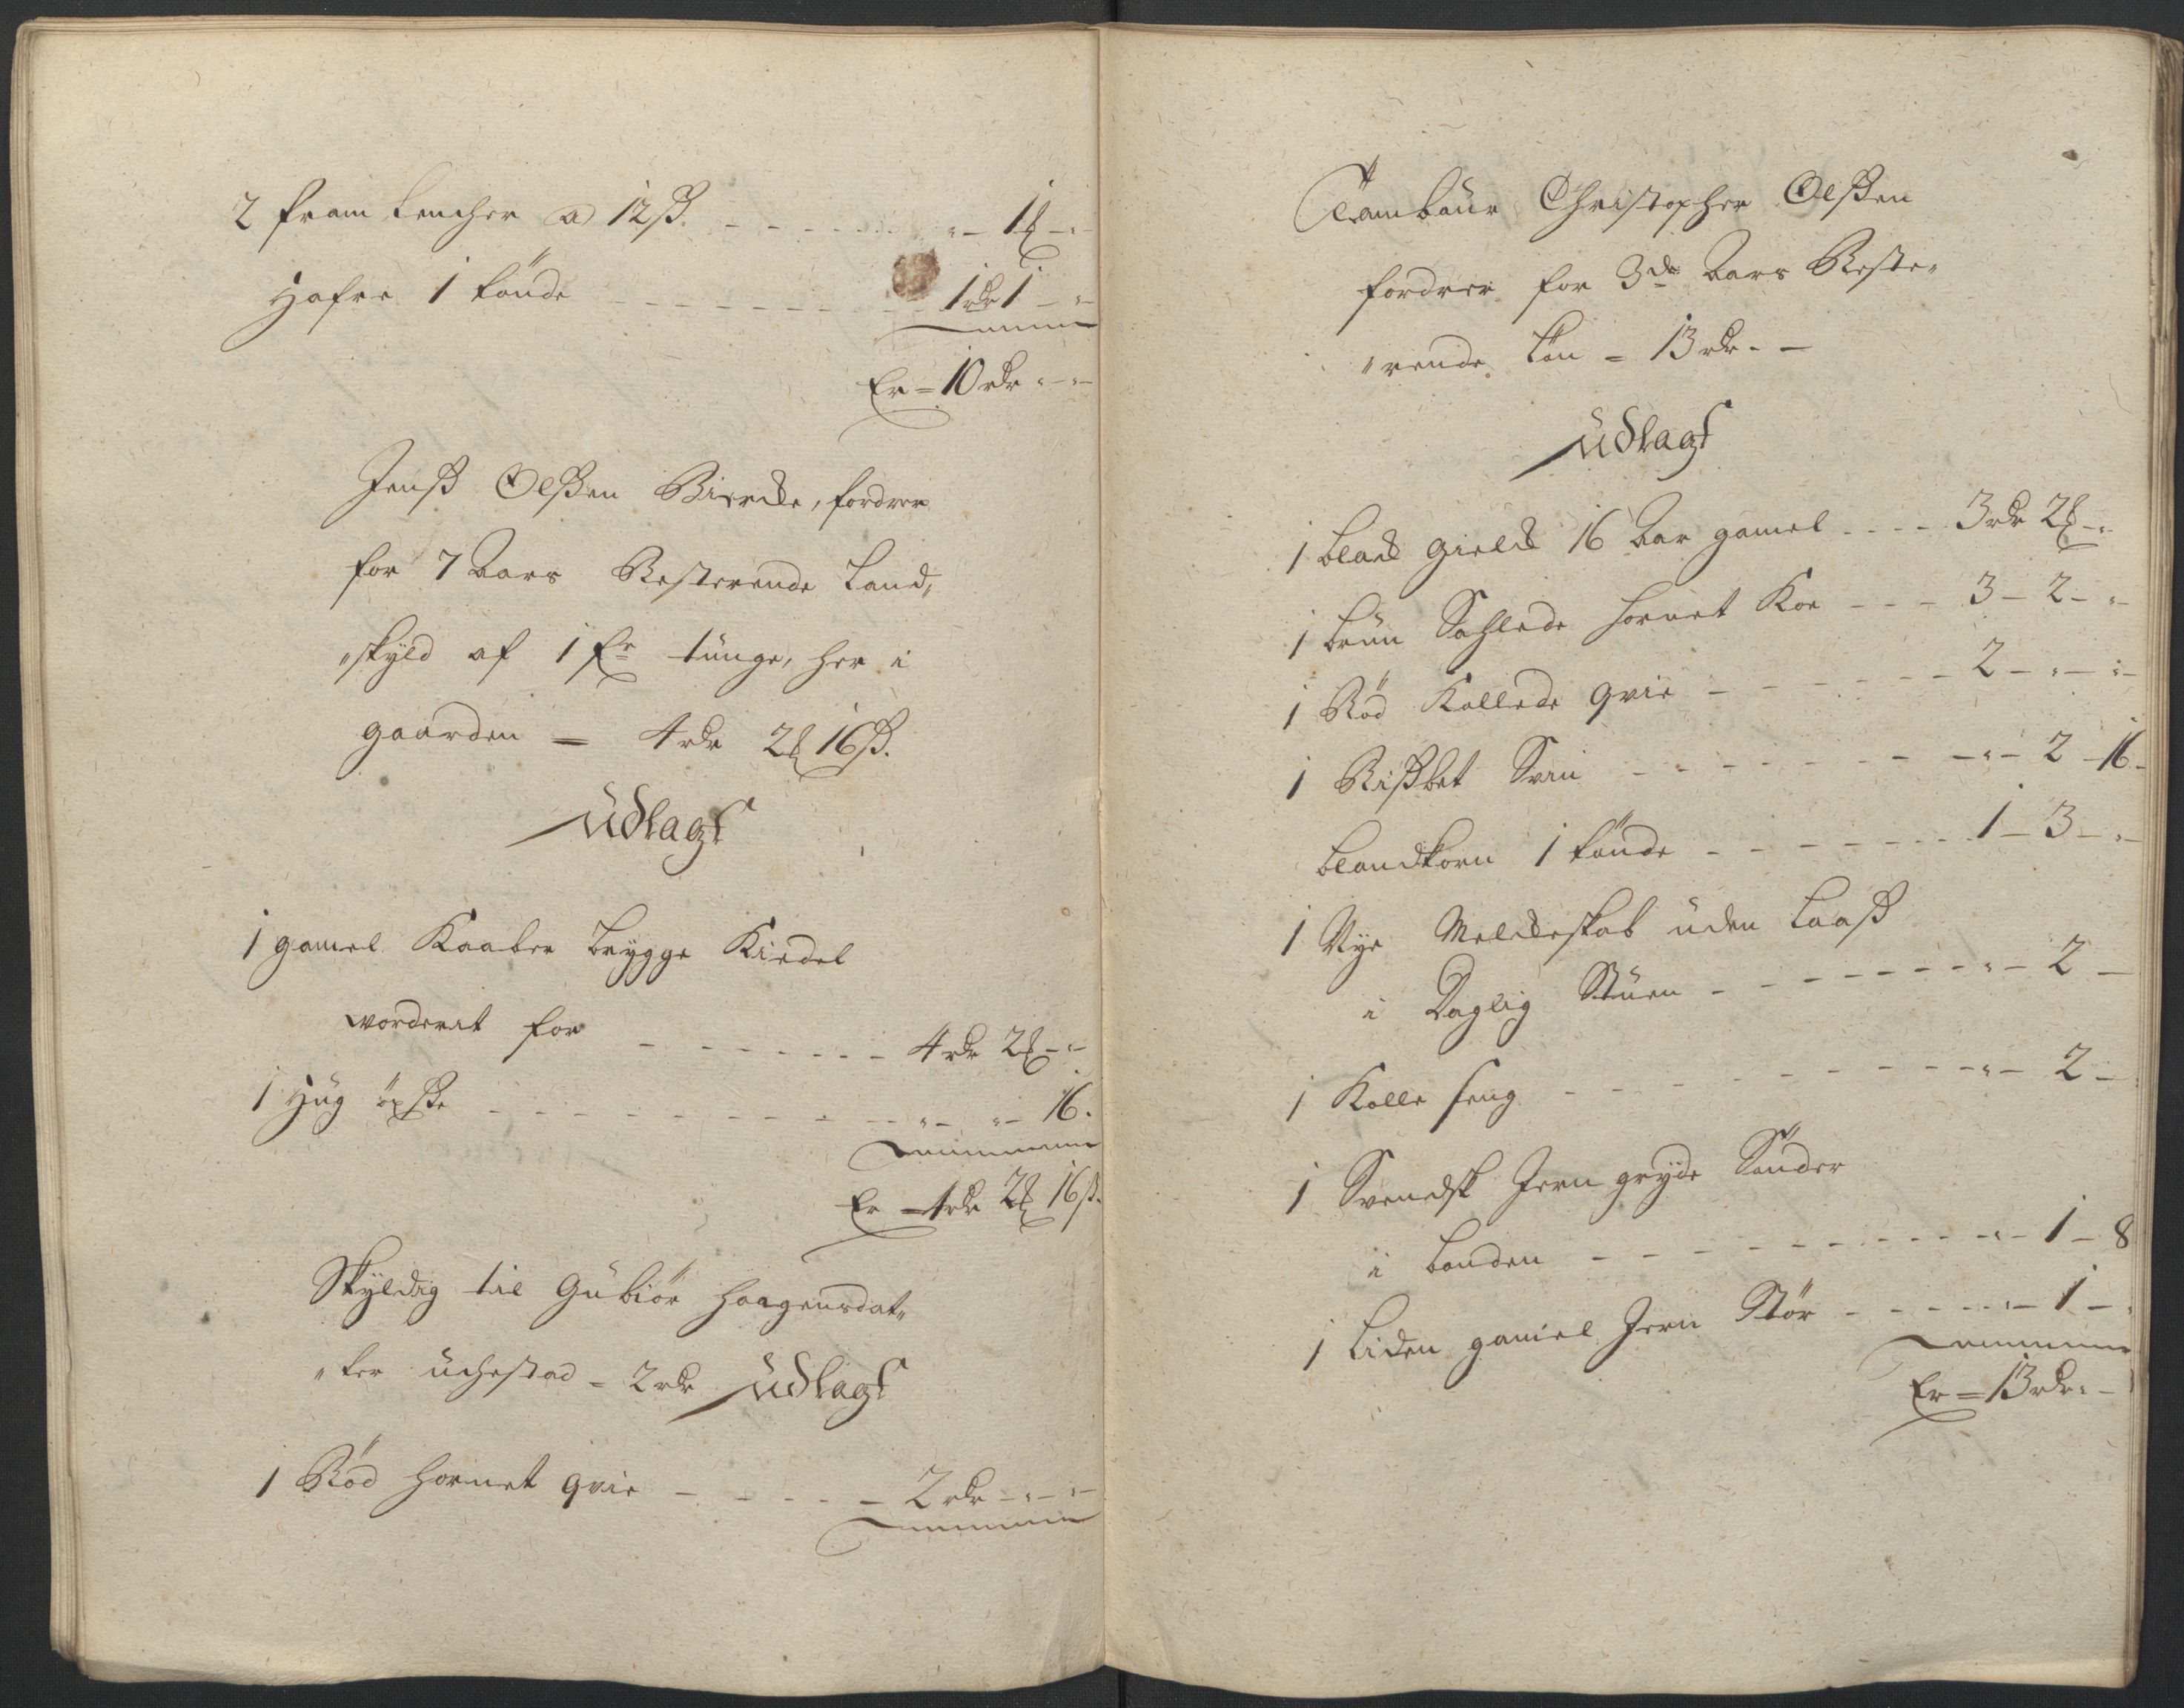 2 fram lencher a 12 ß. - - - - " - 1 ₰ - "
Hafre 1 tønde - - - - - - 1 rdr 1 - "
Er = 10 rdr " - "
Jenß Olßen Biercke, fordrer
for 7 Aars Resterende Land„
„skyld af 1 fr tunge, her i
gaarden = 4 rdr 2 ₰ 16 ß.
Udlagt
1 gamel Kaaber brygge Kiedel
vorderit for - - - - - - 4 rdr 2 ₰ - "
1 Hug øxße - - - - - - - " - " - 16.
Er = 4 rdr 2 ₰ 16 ß.
Skyldig til Gubiør Haagensdat„
„ter = 2 rdr Udlagt
1 Rød hornet qvie - - - - - 2 rdr - " - "
Tambour Christopher Olßen
fordrer for 3de Aars Reste„
„rende løn = 13 rdr - -
Udlagt
1 black gield 16 Aar gamel - - - - 3 rdr 2 ₰ - "
1 brun hornet Koe - - - 3 - 2 - "
1 Rød Kollede qvie - - - - - - 2 - " - "
1 Svin - - - - - - - " - 2 - 16 -
blandkorn 1 tønde - - - - - - - 1 - 3 - "
1 Nye Melckeskab uden Laaß
i Daglig Stuen - - - - - - - " - 2 -
1 Rolle seng - - - - - - - - - " - 2 -
1 Svendsk Jern gryde Sønder
i bonden - - - - - - - - - " - 1 - 8
1 liden gamel Jern Stør - - - - - " - 1 - "
Er = 13 rdr " -